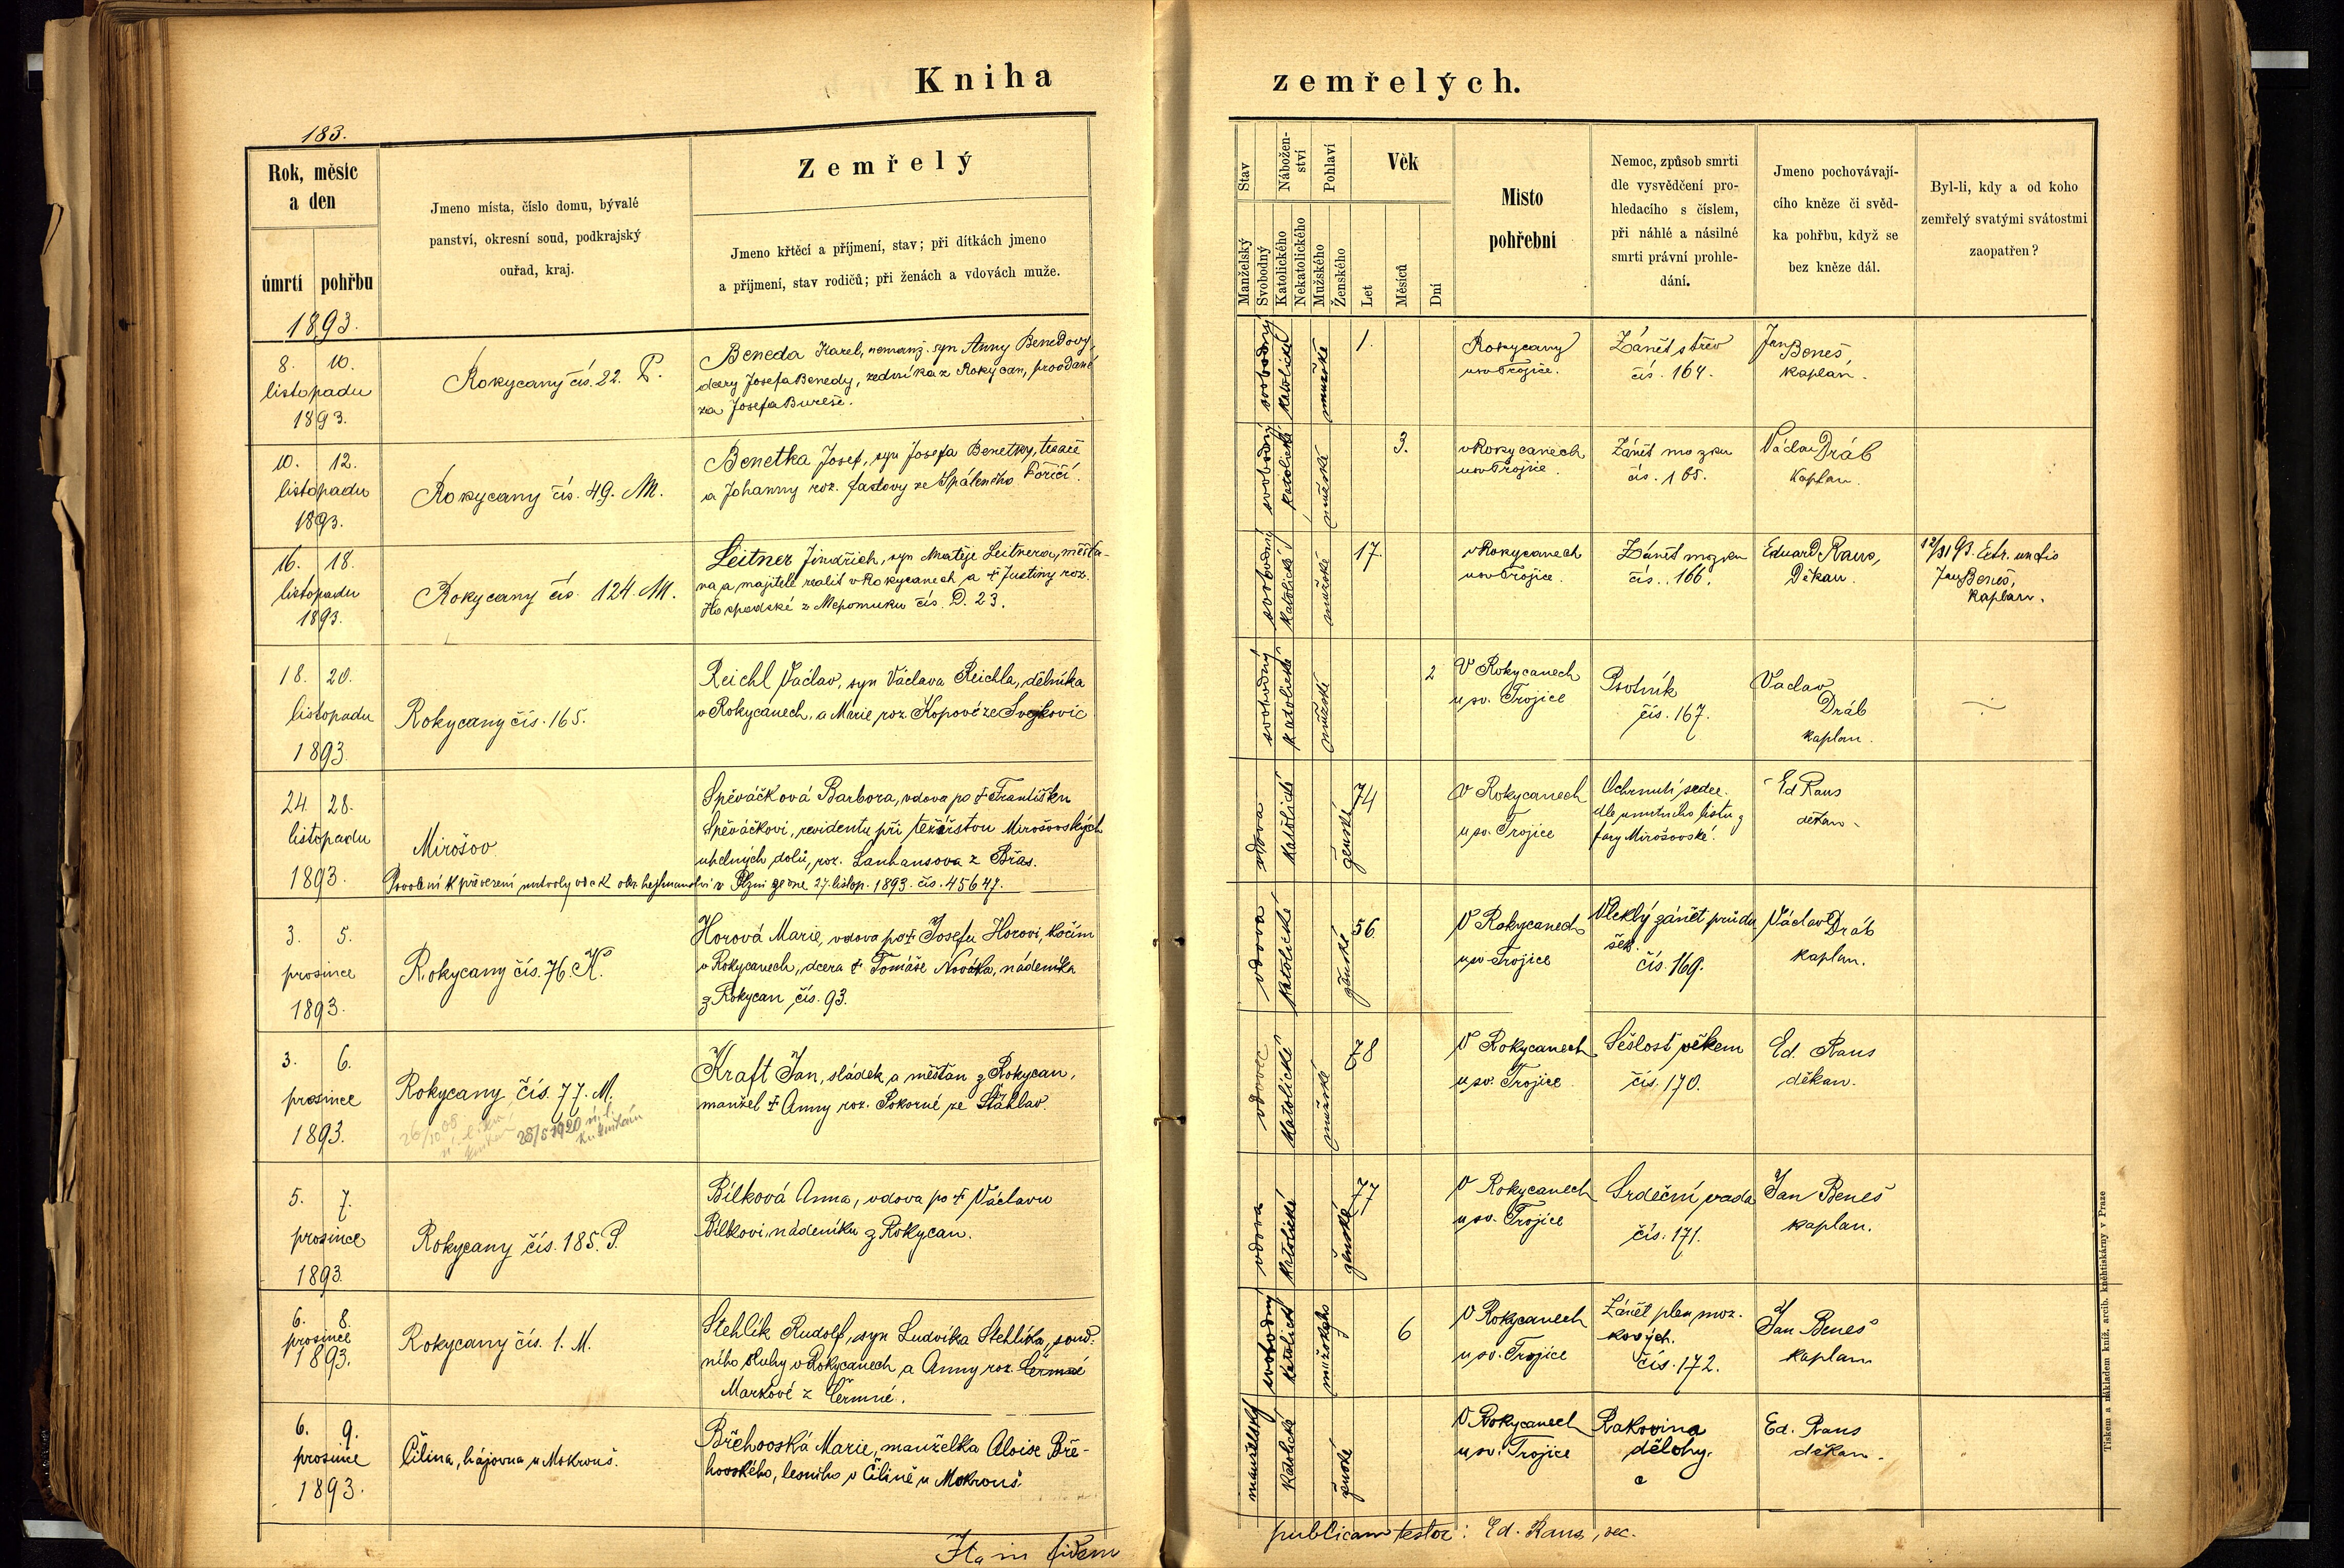 Kniha zemřelých.
183.
Rok, měsíc
a den
úmrtí pohřbu
Jmeno místa, číslo domu, bývalé
panství, okresní soud, podkrajský
ouřad, kraj.
Zemřelý
Jmeno křtěcí a příjmení, stav; při dítkách jmeno
a příjmení, stav rodičů; při ženách a vdovách muže.
Stav
Manželský
Svobodný
Nábožen-
ství
Katolického
Nekatolického
Pohlaví
Mužského
Ženského
Věk
Let
Měsíců
Dní
Místo
pohřební
Nemoc, způsob smrti
dle vysvědčení pro-
hledacího s číslem,
při náhlé a násilné
smrti právní prohle-
dání.
Jmeno pochovávají-
cího kněze či svěd-
ka pohřbu, když se
bez kněze dál.
Byl-li, kdy a od koho
zemřelý svatými svátostmi
zaopatřen?
1893.
8. 10.
listopadu
1893.
Rokycany čís. 22. P.
Beneda Karel, nemanž. syn Anny Benedovy,
dcery Josefa Benedy, zedníka z Rokycan, provdané
za Josefa Bureše.
svobodný
katolické
mužské
1.
Rokycany
u sv. Trojice.
Zánět střev
čís. 164.
Jan Beneš,
kaplan.
10. 12.
listopadu
1893.
Rokycany čís. 49. M.
Benetka Josef, syn Josefa Benetky, tesaře
a Johanny roz. ze Spáleného Poříčí.
svobodný
katolické
mužské
3.
v Rokycanech
u sv. Trojice.
Zánět mozku
čís. 165.
Václav Dráb
kaplan.
16. 18.
listopadu
1893.
Rokycany čís. 124. M.
Leitner Jindřich, syn Matěje Leitnera, měšťa-
na a majitele realit v Rokycanech a † Justiny roz.
Hospodské z Nepomuku čís. D. 23.
svobodný
katolické
mužské
17.
v Rokycanech
u sv. Trojice.
Zánět mozku
čís. 166.
Eduard Raus,
Děkan.
12/XI 93. Extr. unctio
Jan Beneš,
kaplan.
18. 20.
listopadu
1893.
Rokycany čís. 165.
Reichl Václav, syn Václava Reichla, dělníka
v Rokycanech, a Marie roz. Kopové ze Svojkovic
svobodný
katolické
mužské
2
V Rokycanech
u sv. Trojice
Psotník
čís. 167.
Vaclav
Dráb
kaplan.
24. 28.
listopadu
1893.
Mirošov
Spěváčková Barbora, vdova po † Františku
Spěváčkovi, revidentu při težířstvu Mirošovských
uhelných dolů, roz. Lanhansova z Břas.
Povolení k převezení mrtvoly od c. k. okr. hejtmanství v Plzni ze dne 27. listop. 1893. čís. 45647.
vdova
katolické
ženské
74
V Rokycanech
u sv. Trojice
Ochrnutí srdce.
dle úmrtního listu z
fary Mirošovské.
Ed Raus
děkan
3. 5.
prosince
1893.
Rokycany čís. 76. K.
Horová Marie, vdova po † Josefu Horovi, kočím
v Rokycanech, dcera † Tomáše Nováka, nádeníka
z Rokycan čís. 93.
vdova
katolické
ženské
56
V Rokycanech
u sv. Trojice
Vleklý zánět průdu
šek.
čís. 169.
Václav Dráb
kaplan.
3. 6.
prosince
1893.
Rokycany čís. 77. M.
25/5 1920
Kraft Jan, sládek a měšťan z Rokycan,
manžel † Anny roz. Pokorné ze Štáhlav.
vdovec
katolické
mužské
78
V Rokycanech
u sv. Trojice
Sešlost věkem
čís. 170.
Ed. Raus
děkan.
5. 7.
prosince
1893.
Rokycany čís. 185. P.
Bílková Anna, vdova po † Václavu
Bílkovi, nádeníku z Rokycan.
vdova
katolické
ženské
77
V Rokycanech
u sv. Trojice
Srdeční vada
čís. 171.
Jan Beneš
kaplan.
6. 8.
prosince
1893.
Rokycany čís. 1. M.
Stehlík Rudolf, syn Ludvíka Stehlíka, soud-
ního sluhy v Rokycanech, a Anny roz. Čermné
Markové z Čermné.
svobodný
katolické
mužského
6
V Rokycanech
u sv. Trojice
Zánět plen moz-
kových.
čís. 172.
Jan Beneš
kaplan
6. 9.
prosince
1893.
Čilina, hájovna u Mokrouš.
Břehovská Marie, manželka Aloise Bře-
hovského, lesního v Čilině u Mokrouš.
manželský
katolické
ženské
V Rokycanech
u sv. Trojice
Rakovina
dělohy.
Ed. Raus
děkan.
Ita in fidem publicam testor: Ed. Raus, dec.
Tiskem a nákladem kníž. arcib. kněhtiskárny v Praze